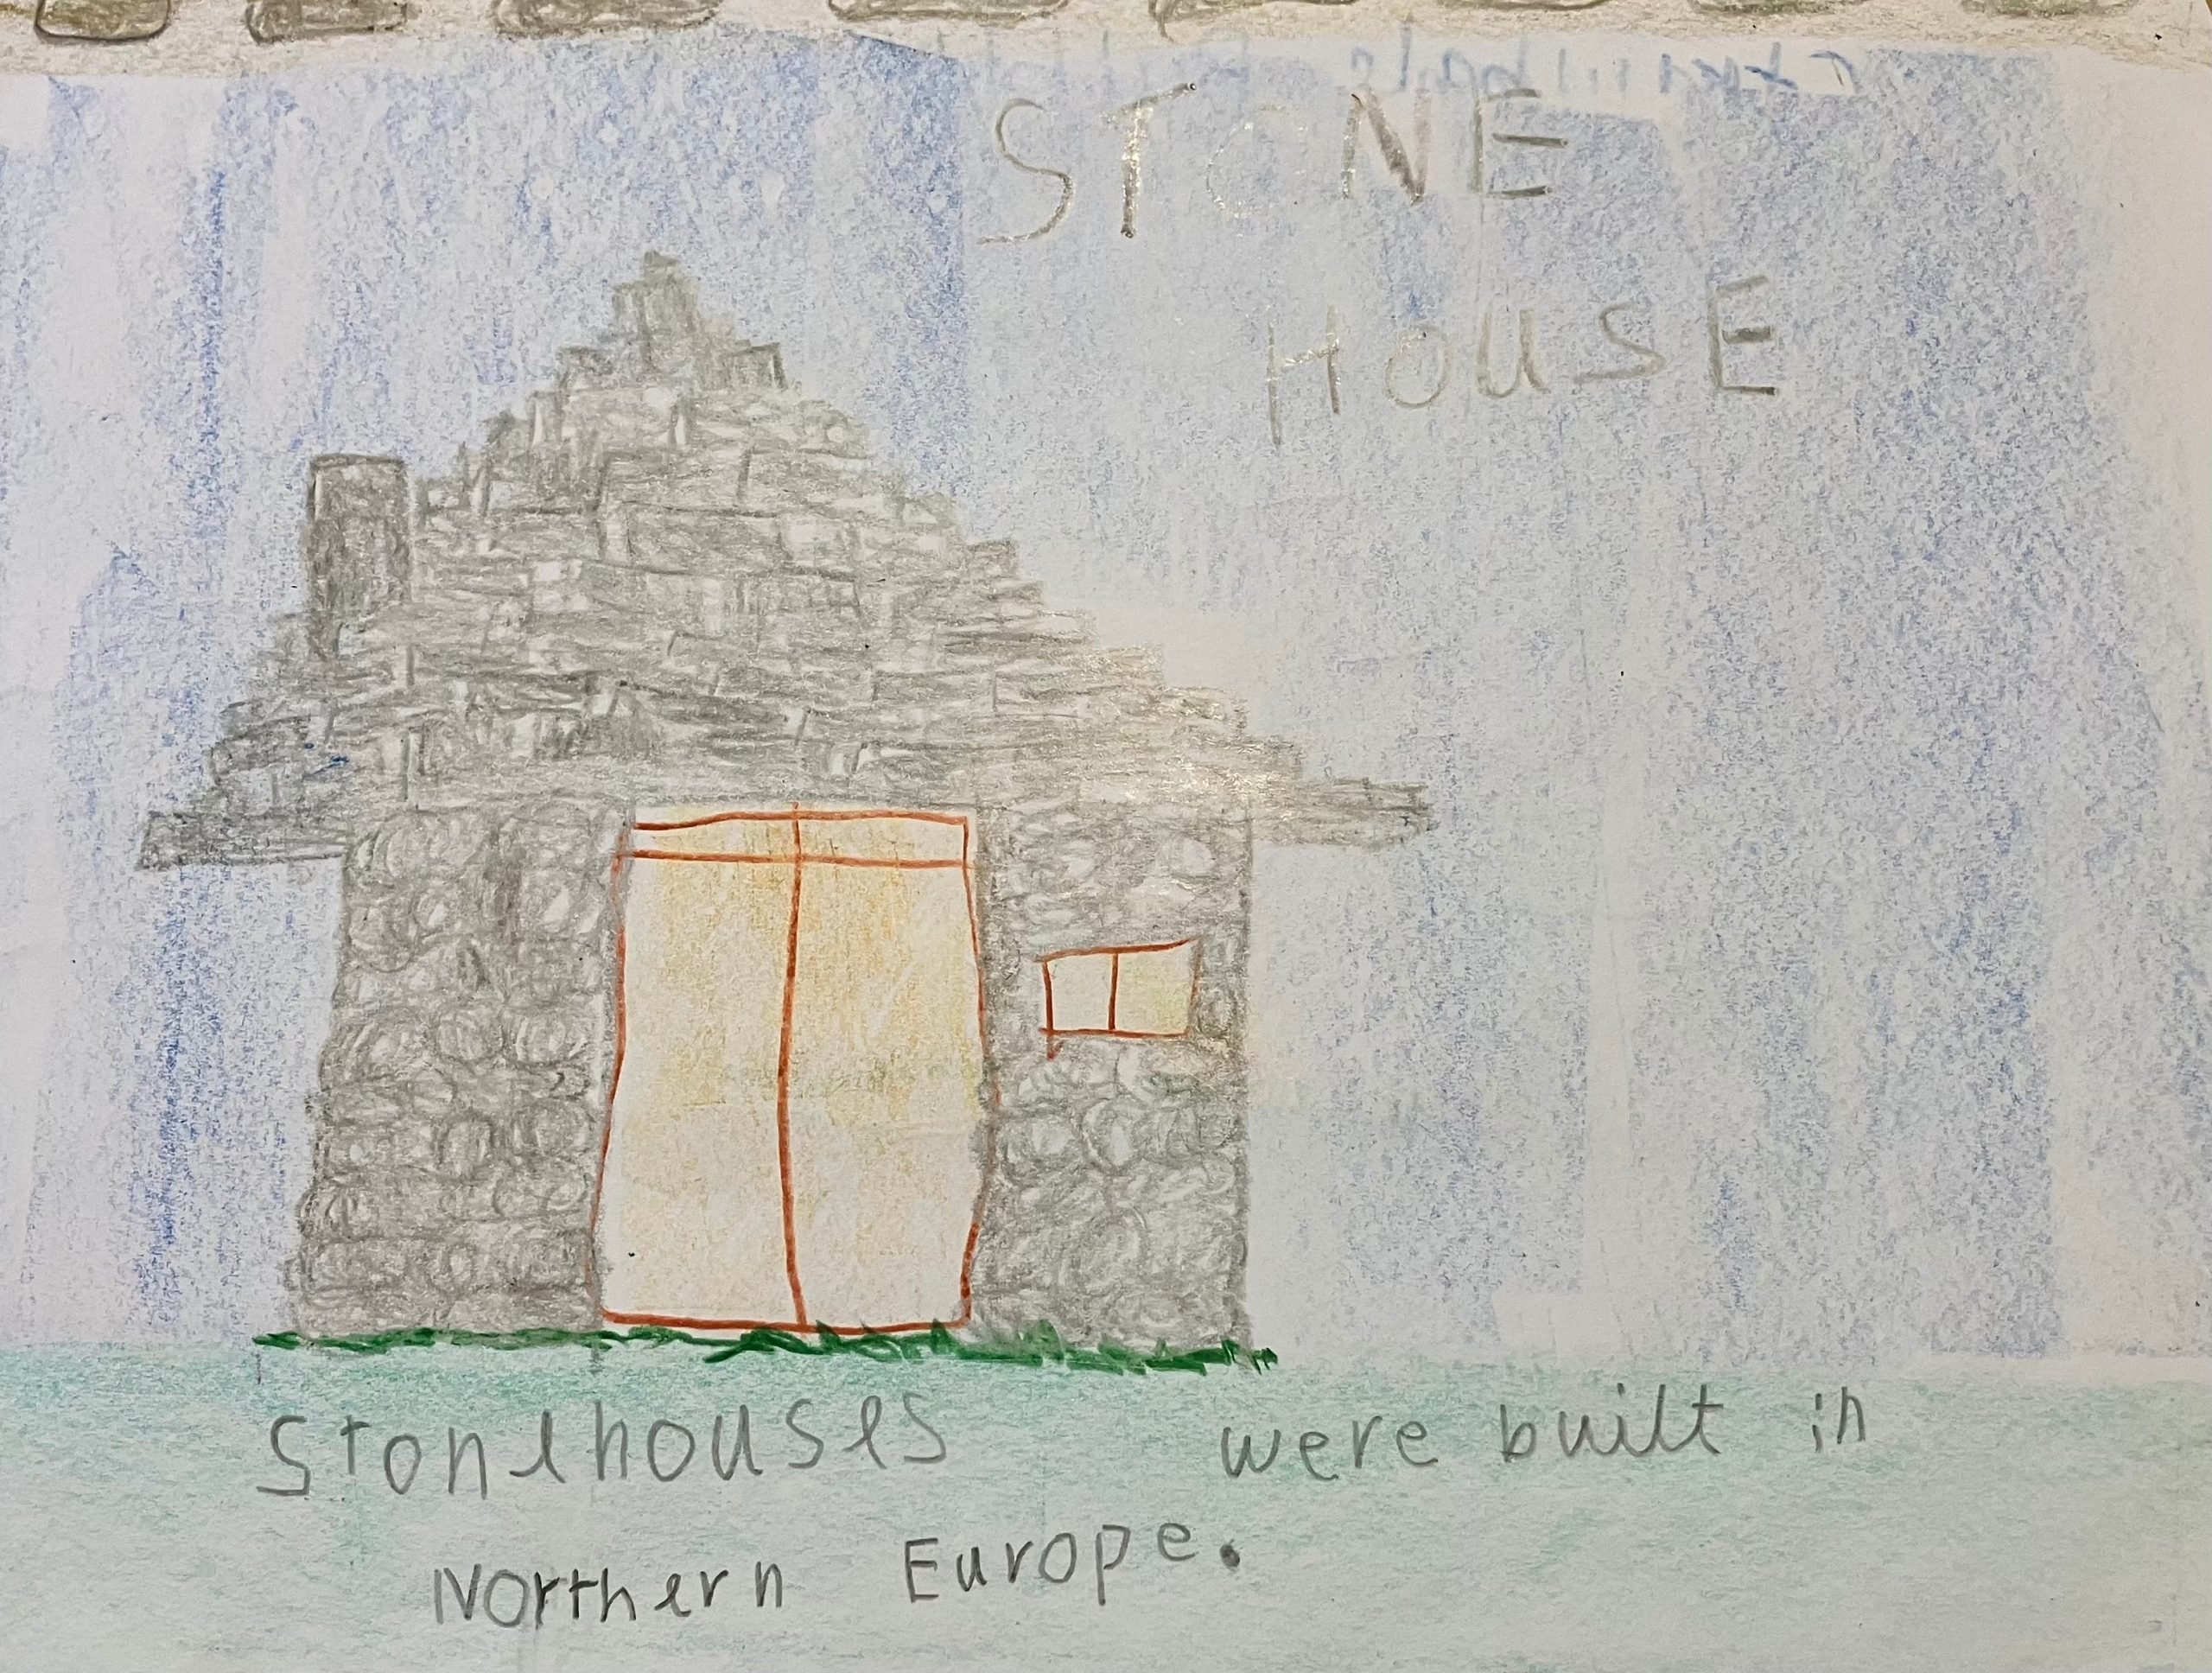 STONE
HOUSE
Stonehouses were built in
Northern Europe.